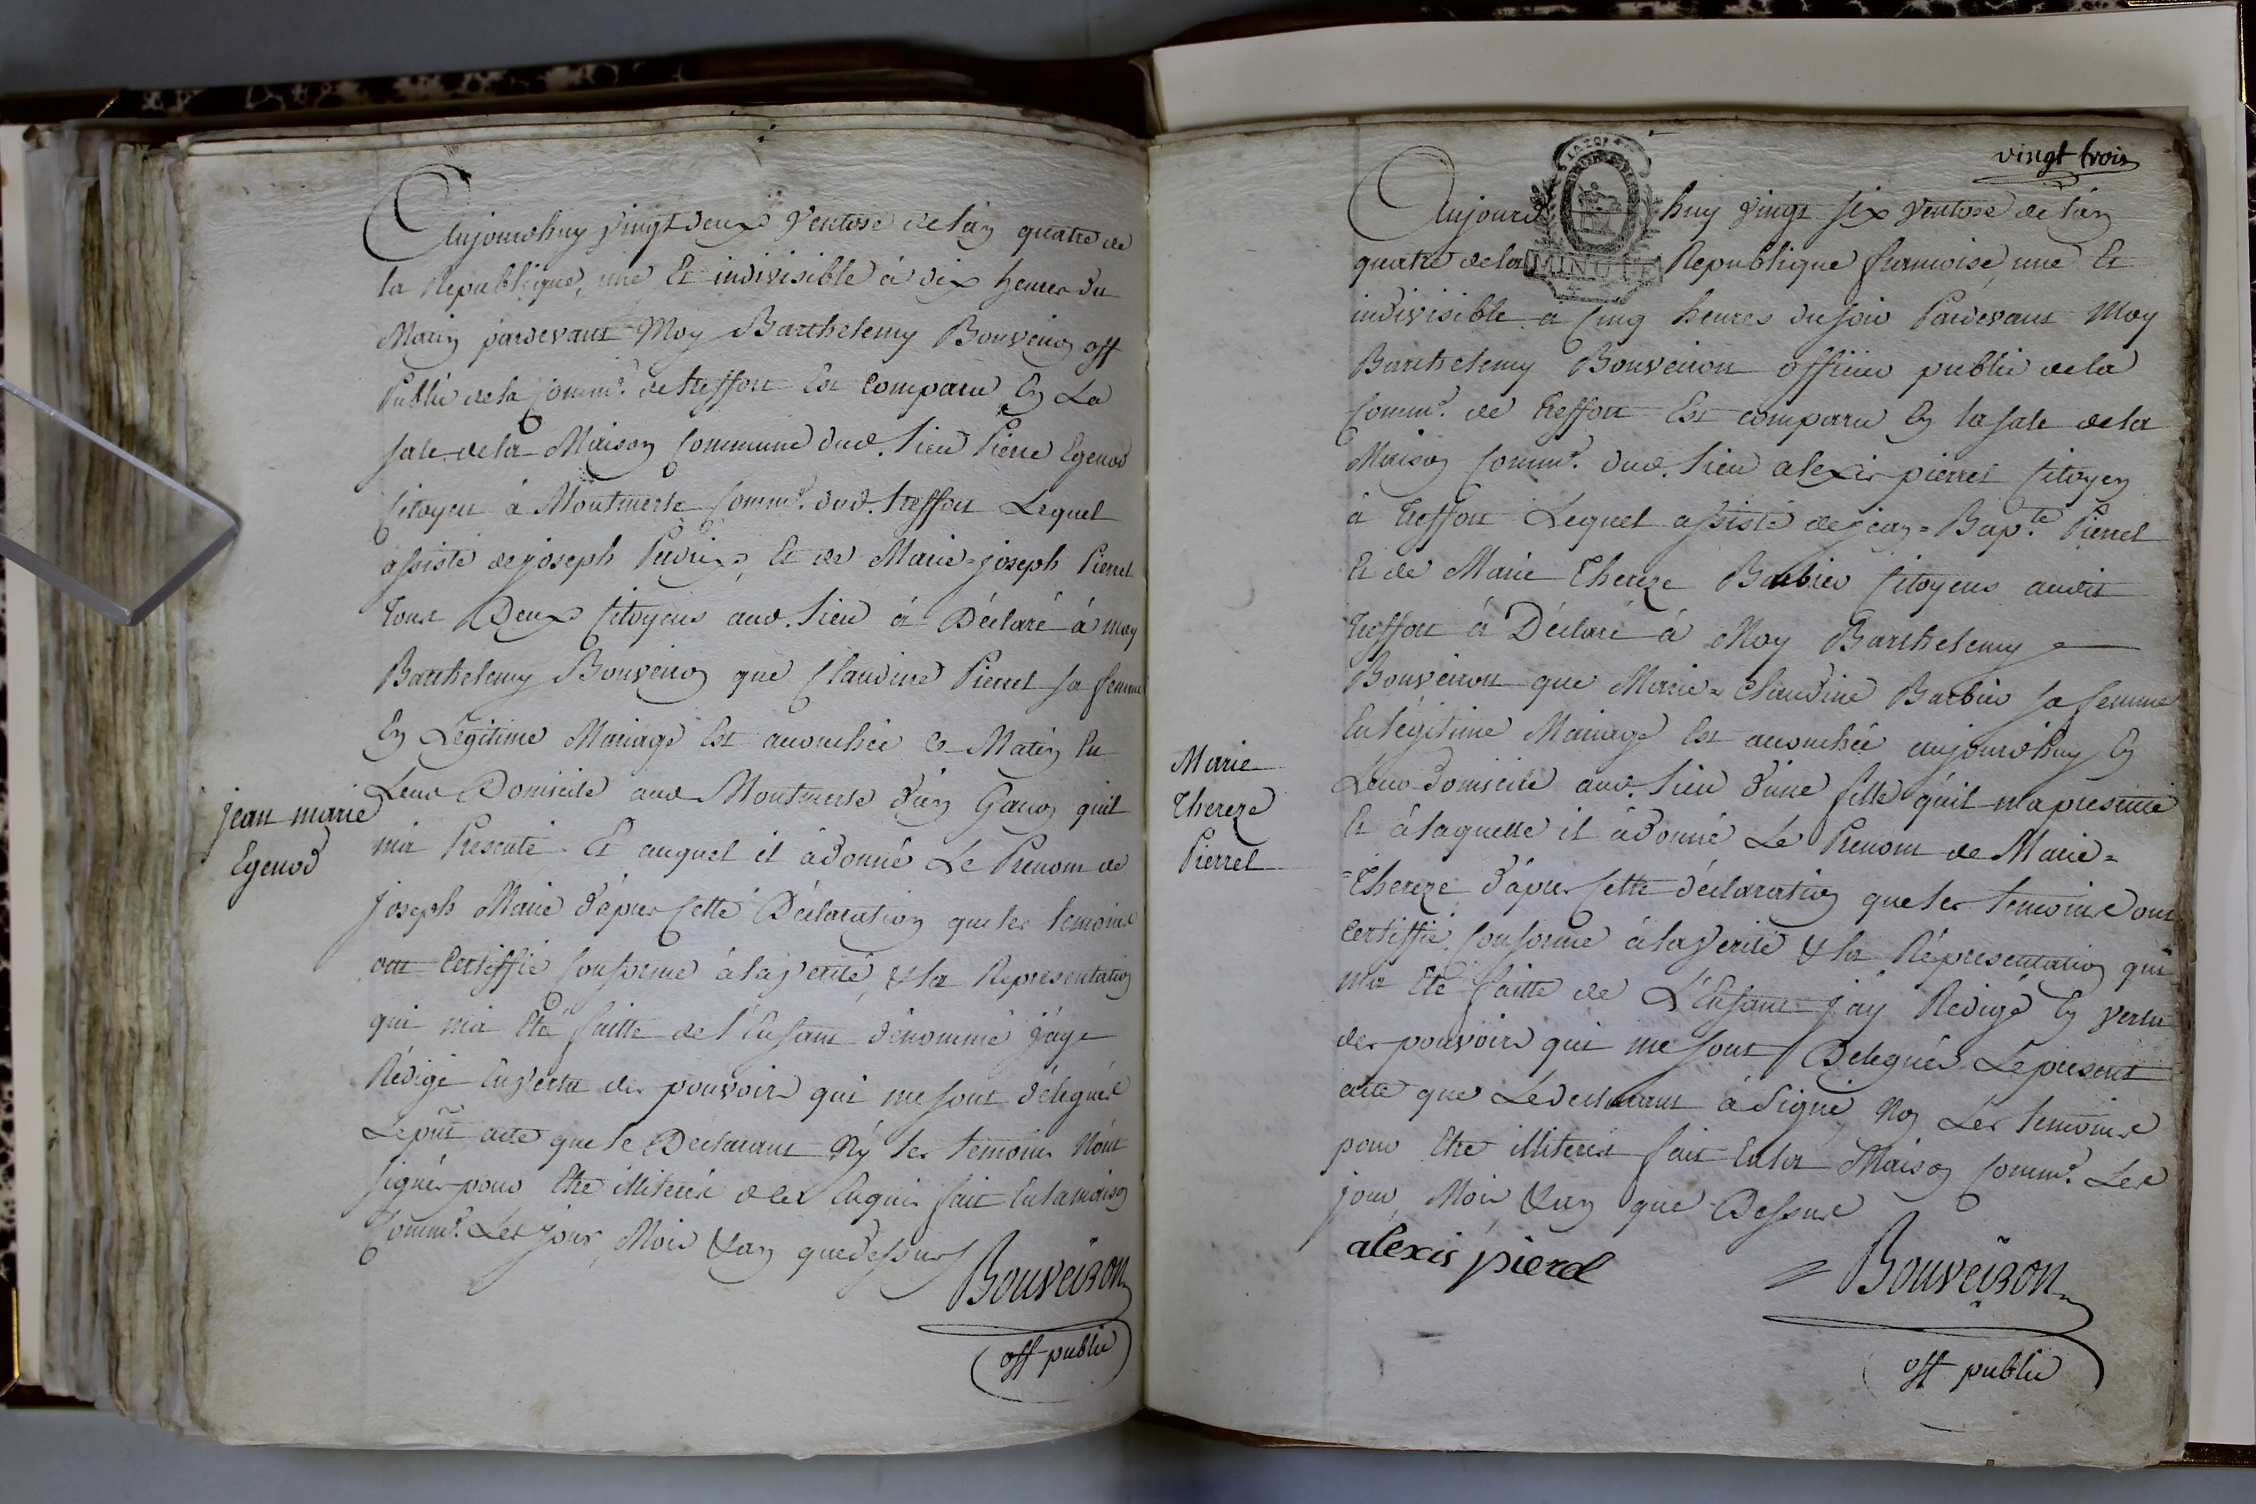 Aujourdhuy vingt deux Ventose de l'an quatre de
la Republique, une Et indivisible à dix heures du
Matin pardevant Moy Barthelemy Bouveiron off
Public de la Comm.e de treffort Est Comparu En La
sale de la Maison Commune dud. lieu Pierre Egenod
Citoyen à Montmerle Comm.e dud. treffort Lequel
assisté de joseph Et de Marie-joseph Pierrel
tous Deux Citoyens aud. lieu à Déclaré à moy
Barthelemy Bouveiron que Claudine Pierrel sa femme
En Légitime Mariage Est acouchée ce Matin En
Leur Domicile aud Montmerle d'un Garçon quil
ma Presenté Et auquel il à donné Le Prenom de
jean marie
Egenod
Joseph Marie d'après Cette Déclaration que les temoins
ont Certiffié Conforme à la verité, & la Representation
qui m'a Eté faitte de l'Enfant dénommé j'ay
Rédigé En vertu des pouvoirs qui me sont délegués
Le pnt acte que le Declarant Ny les temoins N'ont
signés pour Etre illiterés de ce Enquis fait En la maison
Comm.e Les jour, Mois & an que dessus
Bouveiron
off public
vingt trois
Aujourd huy vingt six ventose de l'an
quatre de la Republique francoise, une Et
MINUTE
indivisible à Cinq heures du soir Pardevant Moy
Barthelemy Bouveiron officier public de la
Comm.e de treffort Est comparu En la sale de la
Maison Comm.e dud. lieu alexis pierrel Citoyen
à treffort Lequel assisté de jean-Bap.te Pierrel
Et de Marie Thereze Barbier Citoyens audit
treffort à Déclaré à Moy Barthelemy
Bouveiron que Marie-Claudine Barbier sa femme
En légitime Mariage Est acouchée aujourdhuy En
Leur domicile aud. lieu d'une fille qu'il m'a presenté
Et à laquelle il à donné Le Prenom de Marie=
Marie
Thereze
Pierrel
=Thereze d'après Cette déclaration que les temoins ont
certiffié Conforme à la verité & la Répresentation qui
m'a Eté faitte de L'Enfant j'ay Redigé En vertu
des pouvoirs qui me sont Delegués Le present
acte que Le declarant à signé, Non Les temoins
pour Etre illiterés fait En la Maison Comm.e Les
jour, Mois & an que Dessus
alexis pierel
Bouveiron
off public